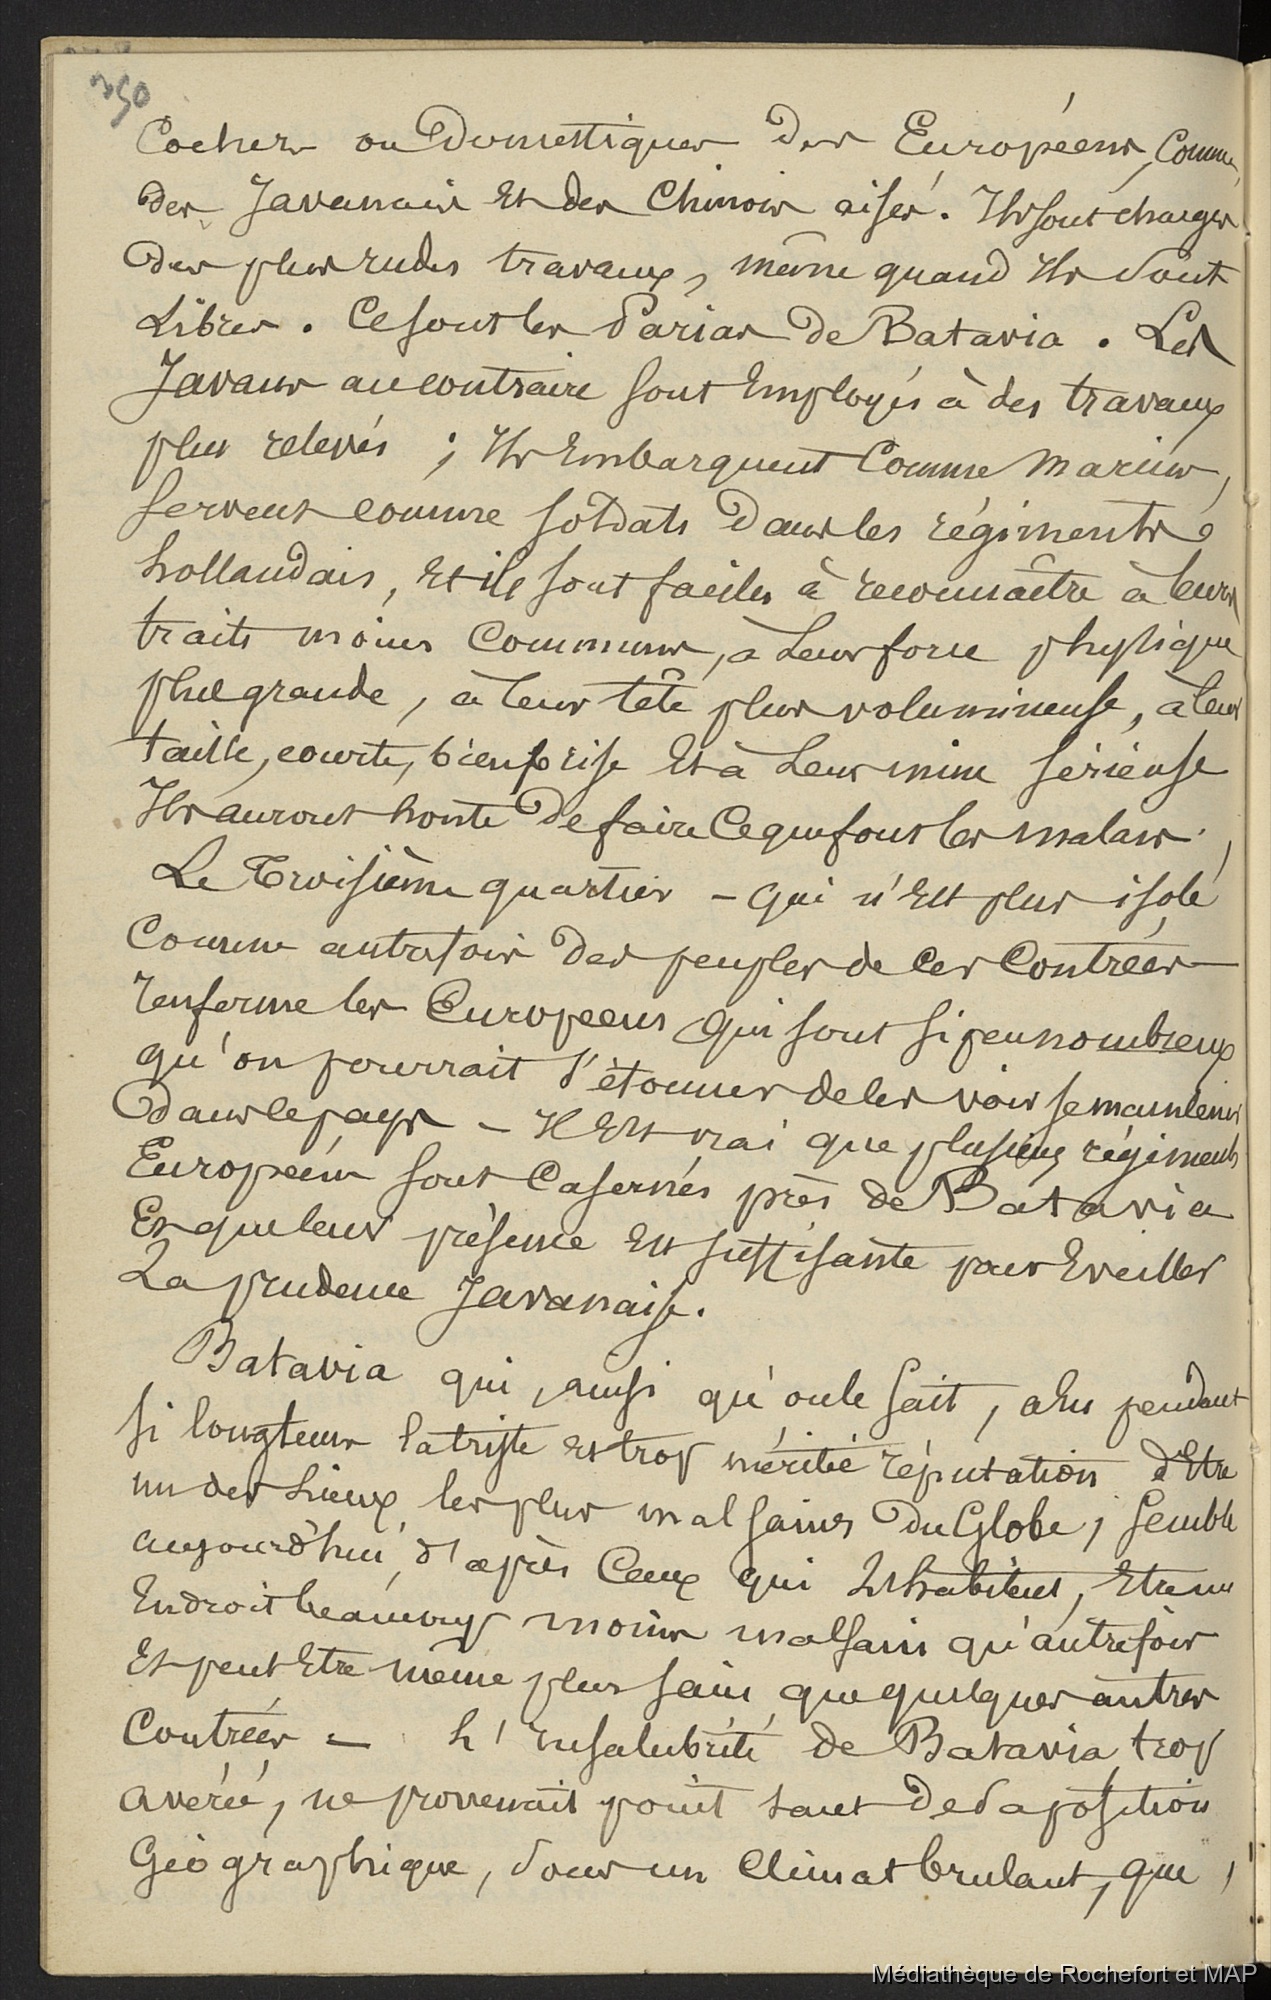 350
Cochers ou Domestiques Des Européens, Comme
Des Javanais Et des Chinois aisés. Ils sont chargés
Des plus rudes travaux, même quand Ils sont
Libres. Ce sont les Parias De Batavia. Les
Javans au contraire sont Employés à des travaux
plus relevés ; Ils Embarquent Comme Marins,
servent comme soldats Dans les régiments
hollandais, Et ils sont faciles à reconnaître à leurs
traits moins Communs, à Leur force physique
plus grande, à leur tête plus volumineuse, à leur
taille, courte, bien prise Et à Leur mine sérieuse
Ils auront honte De faire Ce que font les malais.
Le Troisième quartier - qui n'Est plus isolé
Comme autrefois Des peuples de Ces Contrées -
renferme les Européens qui sont si peu nombreux
qu'on pourrait s'étonner de les voir se maintenir
Dans le pays - Il Est vrai que plusieurs régiments
Européens sont Casernés près de Batavia
Et que leur présence Est suffisante pour Eveiller
La prudence Javanaise.
Batavia qui, ainsi qu'on le sait, a Eu pendant
si longtems la triste et trop méritée réputation d'Etre
un des Lieux les plus malsains Du Globe, semble
aujourd'hui, d'après Ceux qui L'habitent, Etre un
Endroit beaucoup moins malsain qu'autrefois
Et peut Etre même plus sain que quelques autres
Contrées - L'Insalubrité de Batavia trop
avérée, ne provenait point tant De sa position
Géographique, sous un Climat brulant, que
Médiathèque de Rochefort et MAP